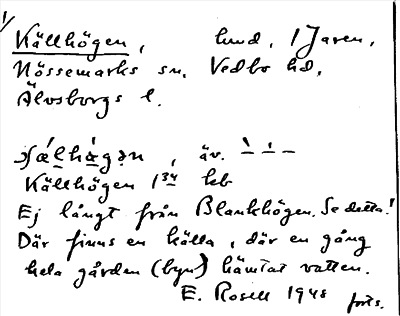 1/
Källhögen, hmd, 1 Jaren,
Nössemarks sn, Vedbo hd,
Älvsborgs l.
äv.
Källhögen 1 34 heb
Ej långt från Blankhögen. Se detta!
Där finns en källa, där en gång
hela gården (byn) hämtat vatten.
E. Rosell 1948 forts.